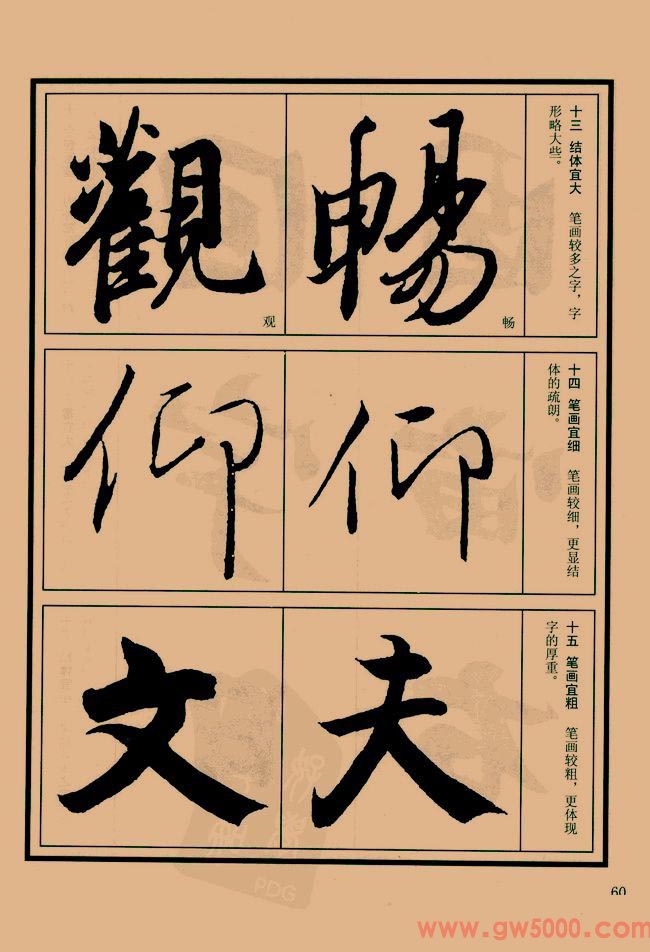 十三 结体宜大 笔画较多之字，字
形略大些。
暢
畅
觀
观
十四 笔画宜细 笔画较细，更显结
体的疏朗。
仰
仰
十五 笔画宜粗 笔画较粗，更体现
字的厚重。
夫
文
PDG
60
www.gw5000.com